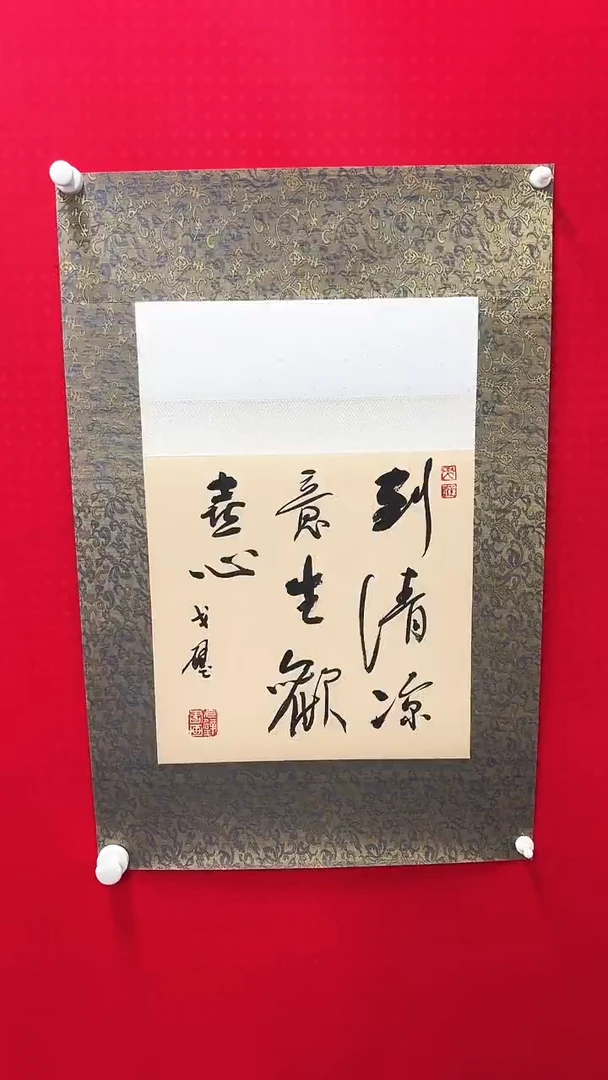 到清凉
意生歡
喜心
戈壁